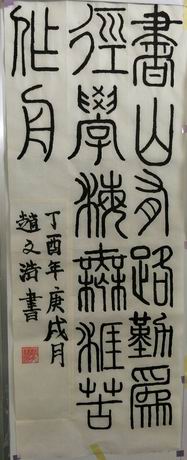 書山有路勤為
徑學海無涯苦
作舟
丁酉年庚戌月
趙文浩書